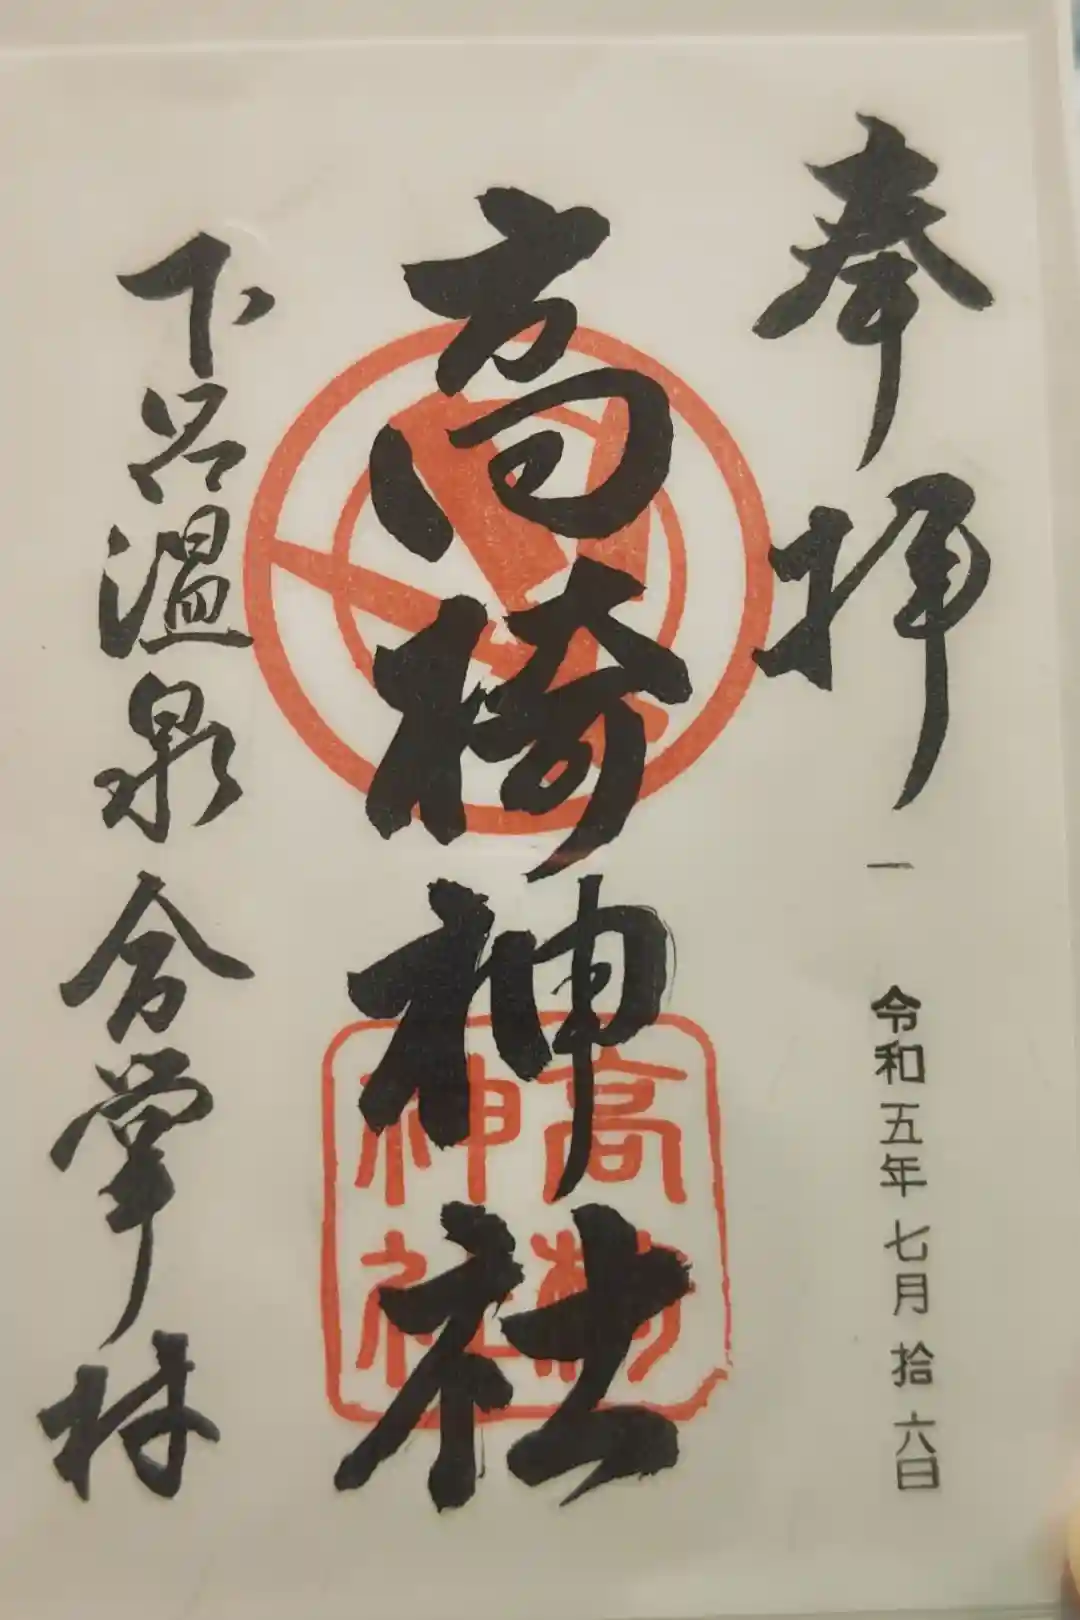 奉拝
一 令和五年七月拾六日
高椅神社
高椅
神社
下呂温泉合掌村